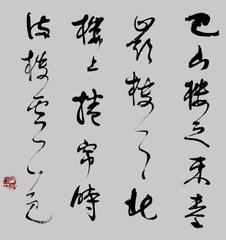 巴山楼之东秦
岭楼之北
楼上捲帘時
满楼云一色